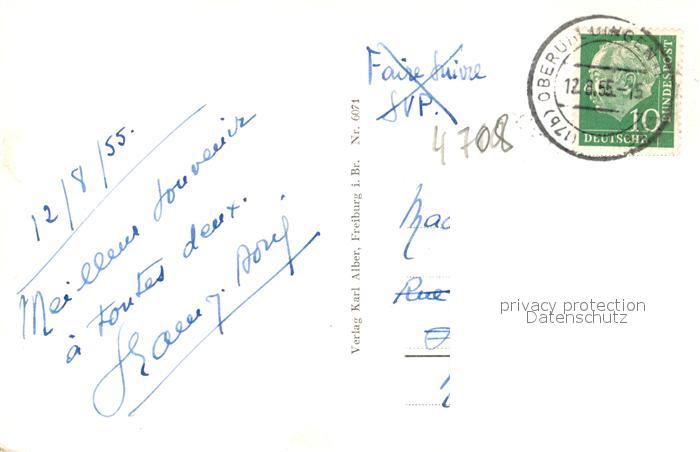 12/8/55.
Meilleur souvenir
à toutes deux.
Verlag Karl Alber, Freiburg i. Br. Nr. 6071
Faire suivre
SVP.
4708
(17b) OBERUHLDINGEN
12.8.55.-15
BUNDESPOST
10
DEUTSCHE
Mad
Rue
privacy protection
Datenschutz